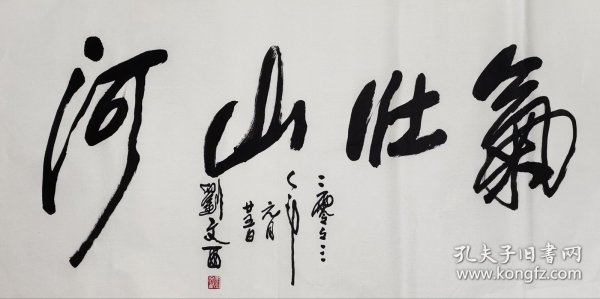 氣壯山河
元月
廿五日
劉文西
孔夫子旧书网
www.kongfz.com